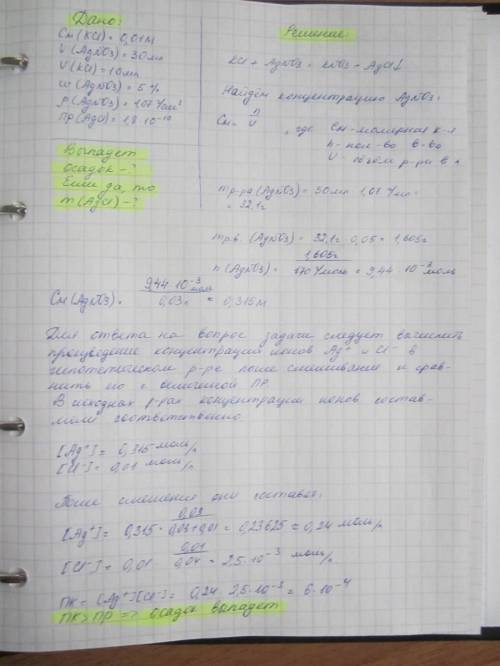 Дано:
См(KCl) = 0,01М
V(AgNO3) = 30мл
V(KCl) = 10мл
ω(AgNO3) = 5%
ρ(AgNO3) = 1,07 г/мл
ПР(AgCl) = 1,8·10⁻¹⁰
Выпадет
осадок - ?
Если да, то
m(AgCl) - ?
Решение:
KCl + AgNO3 = KNO3 + AgCl↓
Найдём концентрацию AgNO3:
См = n/V, где См - молярная к-я
n - кол-во в-ва
V - объём р-ра в л
m р-ра (AgNO3) = 30мл · 1,07 г/мл
= 32,1г
m р.в. (AgNO3) = 32,1г · 0,05 = 1,605г
n(AgNO3) = 1,605г / 170 г/моль = 9,44 · 10⁻³ моль
См(AgNO3) = 9,44·10⁻³ моль / 0,03л = 0,315М
Для ответа на вопрос задачи следует вычислить
произведение концентраций ионов Ag⁺ и Cl⁻ в
гипотетическом р-ре после смешивания и срав-
нить его с величиной ПР.
В исходных р-рах концентрации ионов состав-
соответственно:
[Ag⁺] = 0,315 моль/л
[Cl⁻] = 0,01 моль/л
После смешения они
[Ag⁺] = 0,315 · 0,03/0,03+0,01 = 0,23625 = 0,24 моль/л
[Cl⁻] = 0,01 · 0,01/0,04 = 2,5·10⁻³ моль/л
ПК = [Ag⁺][Cl⁻] = 0,24 · 2,5·10⁻³ = 6·10⁻⁴
ПК > ПР => осадок выпадет